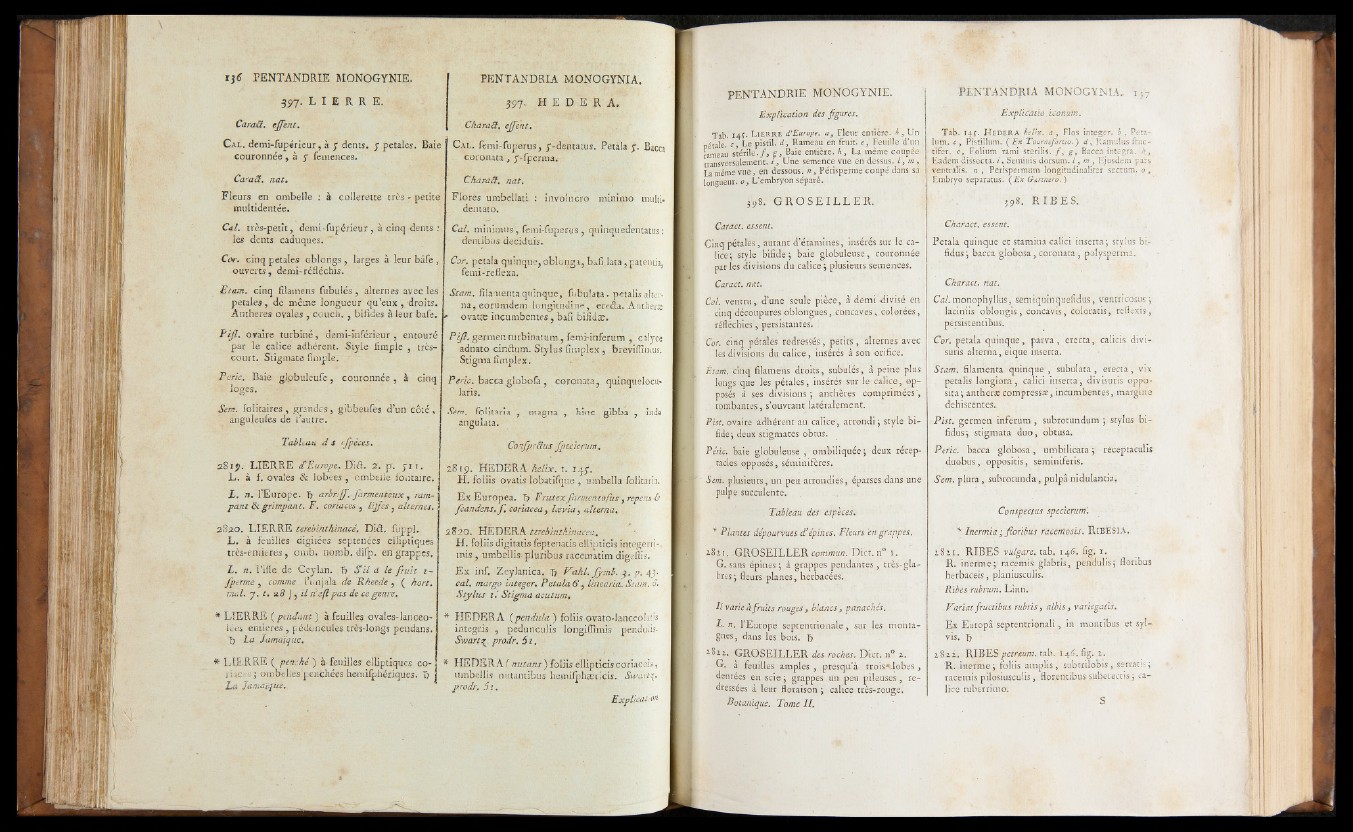 136 PENTANDRIE MONOGYNIE.
397. LIERRE.
Caract. essent.
CAL. demi-supérieur, à 5 dents. 5 petales. Baie
couronnée, à 5 semences.
Caract. nat.
Fleurs en ombelle : à collerette très-petite
multidentée.
Cal. très-petit, demi-supérieur, à cinq dents :
les dents caduques.
Cor. cinq petales oblongs, larges à leur base,
ouverts, demi-réfléchis.
Etam. cinq filamens subulés, alternes avec les
petales, de même longueur qu'eux, droits.
Antheres ovales, couch., bifides à leur base.
Pist. ovaire turbiné, demi-inférieur, entouré
par le calice adhérent. Style simple, très-
court. Stigmate simple.
Peric. Baie globuleuse, couronnée, à cinq
loges.
Sem. solitaires, grandes, gibbeuses d'un côté,
anguleuses de l'autre.
Tableau des especes.
2819. LIERRE d'Europe. Dict. 2. p. 511.
L. à f. ovales & lobées, ombelle solitaire.
L. n. l'Europe. ђ arbriss. sarmenteux, ram-
pant & grimpant. F. coriaces, lisses, alternes.
2820. LIERRE terebinthinacé. Dict. suppl.
L. à feuilles digitées septenées elliptiques
très-entieres, omb. nomb. disp. en grappes.
L. n. l'isle de Ceylan. ђ S'il a le fruit 1-
sperme, comme l'unjala de Rheede, ( hort.
mal. 7. t. 28 ), il n'est pas de ce genre.
* LIERRE ( pendant ) à feuilles ovales-lancéo-
lées entieres, pédoncules très-longs pendans.
ђ La Jamaïque.
* LIERRE ( penché ) à feuilles elliptiques co-
riaces ; ombelles penchées hemisphériques. ђ
La Jamaïque.
PENTANDRIA MONOGYNIA.
397. HEDERA.
Charact. essent.
CAL. semi-superus, 5-dentatus. Petala 5. Bacca
coronata, 5-sperma.
Charact. nat.
Flores umbellati : involucro minimo multi-
dentato.
Cal. minimus, semi-superus, quinquedentatus :
dentibus deciduis.
Cor. petala quinque, oblonga, basi lata, patentia,
semi-reflexa.
Stam. filamenta quinque, subulata. petalis alter-
na, eorumdem longitudine, erecta. Antheræ
ovatæ incumbentes, basi bifidæ.
Pist. germen turbinatum, semi-inferum, calyce
adnato cinctum. Stylus simplex, brevissimus.
Stigma simplex.
Peric. bacca globosa, coronata, quinquelocu-
laris.
Sem. solitaria, magna, hinc gibba, inde
angulata.
Conspectus specierum.
2819. HEDERA helix. t. 145.
H. foliis ovatis lobatisque, umbella solitaria.
Ex Europea. ђ Frutex sarmentosus, repens &
scandens. f. coriacea, lævia, alterna.
2820. HEDERA terebinthinacea.
H. foliis digitatis septenatis ellipticis integerri-
mis, umbellis pluribus racematim digestis.
Ex inf. Zeylanica. ђ Vahl. symb. 3. p. 43.
cal. margo integer. Petala 6, linearia. Stam. 6.
Stylus 1. Stigma acutum.
* HEDERA ( pendula ) foliis ovato-lanceolatis
integris, pedunculis longissimis pendulis.
Swartz prodr. 51.
* HEDERA ( nutans ) foliis ellipticis coriaceis,
umbellis nutantibus hemisphæricis. Swartz.
prodr. 51.
Explication
PENTANDRIE MONOGYNIE.
Explication des figures.
Tab. 145. LIERRE d'Europe. a, Fleur entière. b, Un
pétale. c, Le pistil. d, Rameau en fruit. e, Feuille d'un
rameau stérile. f, g, Baie entière. h, La même coupée
transversalement. i, Une semence vue en dessus. l, m,
La même vue, en dessous. n, Périsperme coupé dans sa
longueur. o, L'embryon séparé.
398. GROSEILLER.
Caract. essent.
Cinq pétales, autant d'étamines, insérés sur le ca-
lice ; style bifide ; baie globuleuse, couronnée
par les divisions du calice ; plusieurs semences.
Caract. nat.
Cal. ventru, d'une seule pièce, à demi divisé en
cinq découpures oblongues, concaves, colorées,
réfléchies, persistantes.
Cor. cinq pétales redressés, petits, alternes avec
les divisions du calice, insérés à son orifice.
Etam. cinq filamens droits, subulés, à peine plus
longs que les pétales, insérés sur le calice, op-
posés à ses divisions ; anthères comprimées,
tombantes, s'ouvrant latéralement.
Pist. ovaire adhérent au calice, arrondi ; style bi-
fide ; deux stigmates obtus.
Péric. baie globuleuse, ombiliquée ; deux récep-
tacles opposés, séminifères.
Sem. plusieurs, un peu arrondies, éparses dans une
pulpe succulente.
Tableau des espèces.
* Plantes dépourvues d'épines. Fleurs en grappes.
2821. GROSEILLER commun. Dict. n° 1.
G. sans épines ; à grappes pendantes, très-gla-
bres ; fleurs planes, herbacées.
Il varie à fruits rouges, blancs, panachés.
L. n. l'Europe septentrionale, sur les monta-
gnes, dans les bois. ђ
2822. GROSEILLER des roches. Dict. n° 2.
G. à feuilles amples, presqu'à trois lobes,
dentées en scie ; grappes un peu pileuses, re-
dressées à leur floraison ; calice très-rouge.
Botanique. Tome II.
PENTANDRIA MONOGYNIA. 137
Explicatio iconum.
Tab. 145. HEDERA helix. a, Flos integer. b, Peta-
lum. c, Pistillum. ( Ex Tournefortio. ) d, Ramulus fruc-
tifer. e, Folium rami sterilis. f, g, Bacca integra. h,
Eadem dissecta. i, Seminis dorsum. l, m, Ejusdem pars
ventralis. n, Perispermum longitudinaliter sectum. o,
Embryo separatus. ( Ex Gærtnero. )
398. RIBES.
Charact. essent.
Petala quinque et stamina calici inserta ; stylus bi-
fidus ; bacca globosa, coronata, polysperma.
Charact. nat.
Cal. monophyllus, semiquinquefidus, ventricosus ;
laciniis oblongis, concavis, coloratis, reflexis,
persistentibus.
Cor. petala quinque, parva, erecta, calicis divi-
suris alterna, eique inserta.
Stam. filamenta quinque, subulata, erecta, vix
petalis longiora, calici inserta, divisuris oppo-
sita ; antheræ compressæ, incumbentes, margine
dehiscentes.
Pist. germen inferum, subrotundum ; stylus bi-
fidus ; stigmata duo, obtusa.
Peric. bacca globosa, umbilicata ; receptaculis
duobus, oppositis, seminiferis.
Sem. plura, subrotunda, pulpâ nidulantia.
Conspectus specierum.
* Inermia ; floribus racemosis. RIBESIA.
2821. RIBES vulgare. tab. 146. fig. 1.
R. inerme ; racemis glabris, pendulis ; floribus
herbaceis, planiusculis.
Ribes rubrum. Linn.
Variat fructibus rubris, albis, variegatis.
Ex Europâ septentrionali, in montibus et syl-
vis. ђ
2822. RIBES petreum. tab. 146. fig. 2.
R. inerme ; foliis amplis, subtrilobis, serratis ;
racemis pilosiusculis, florentibus suberectis ; ca-
lice ruberrimo.
S